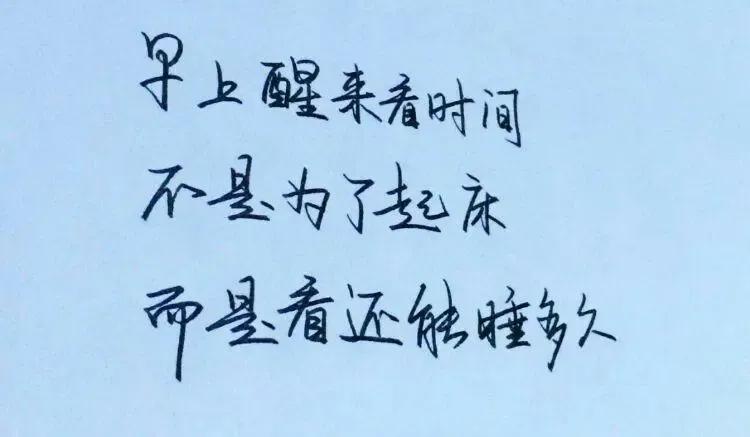 早上醒来看时间
不是为了起床
而是看还能睡多久